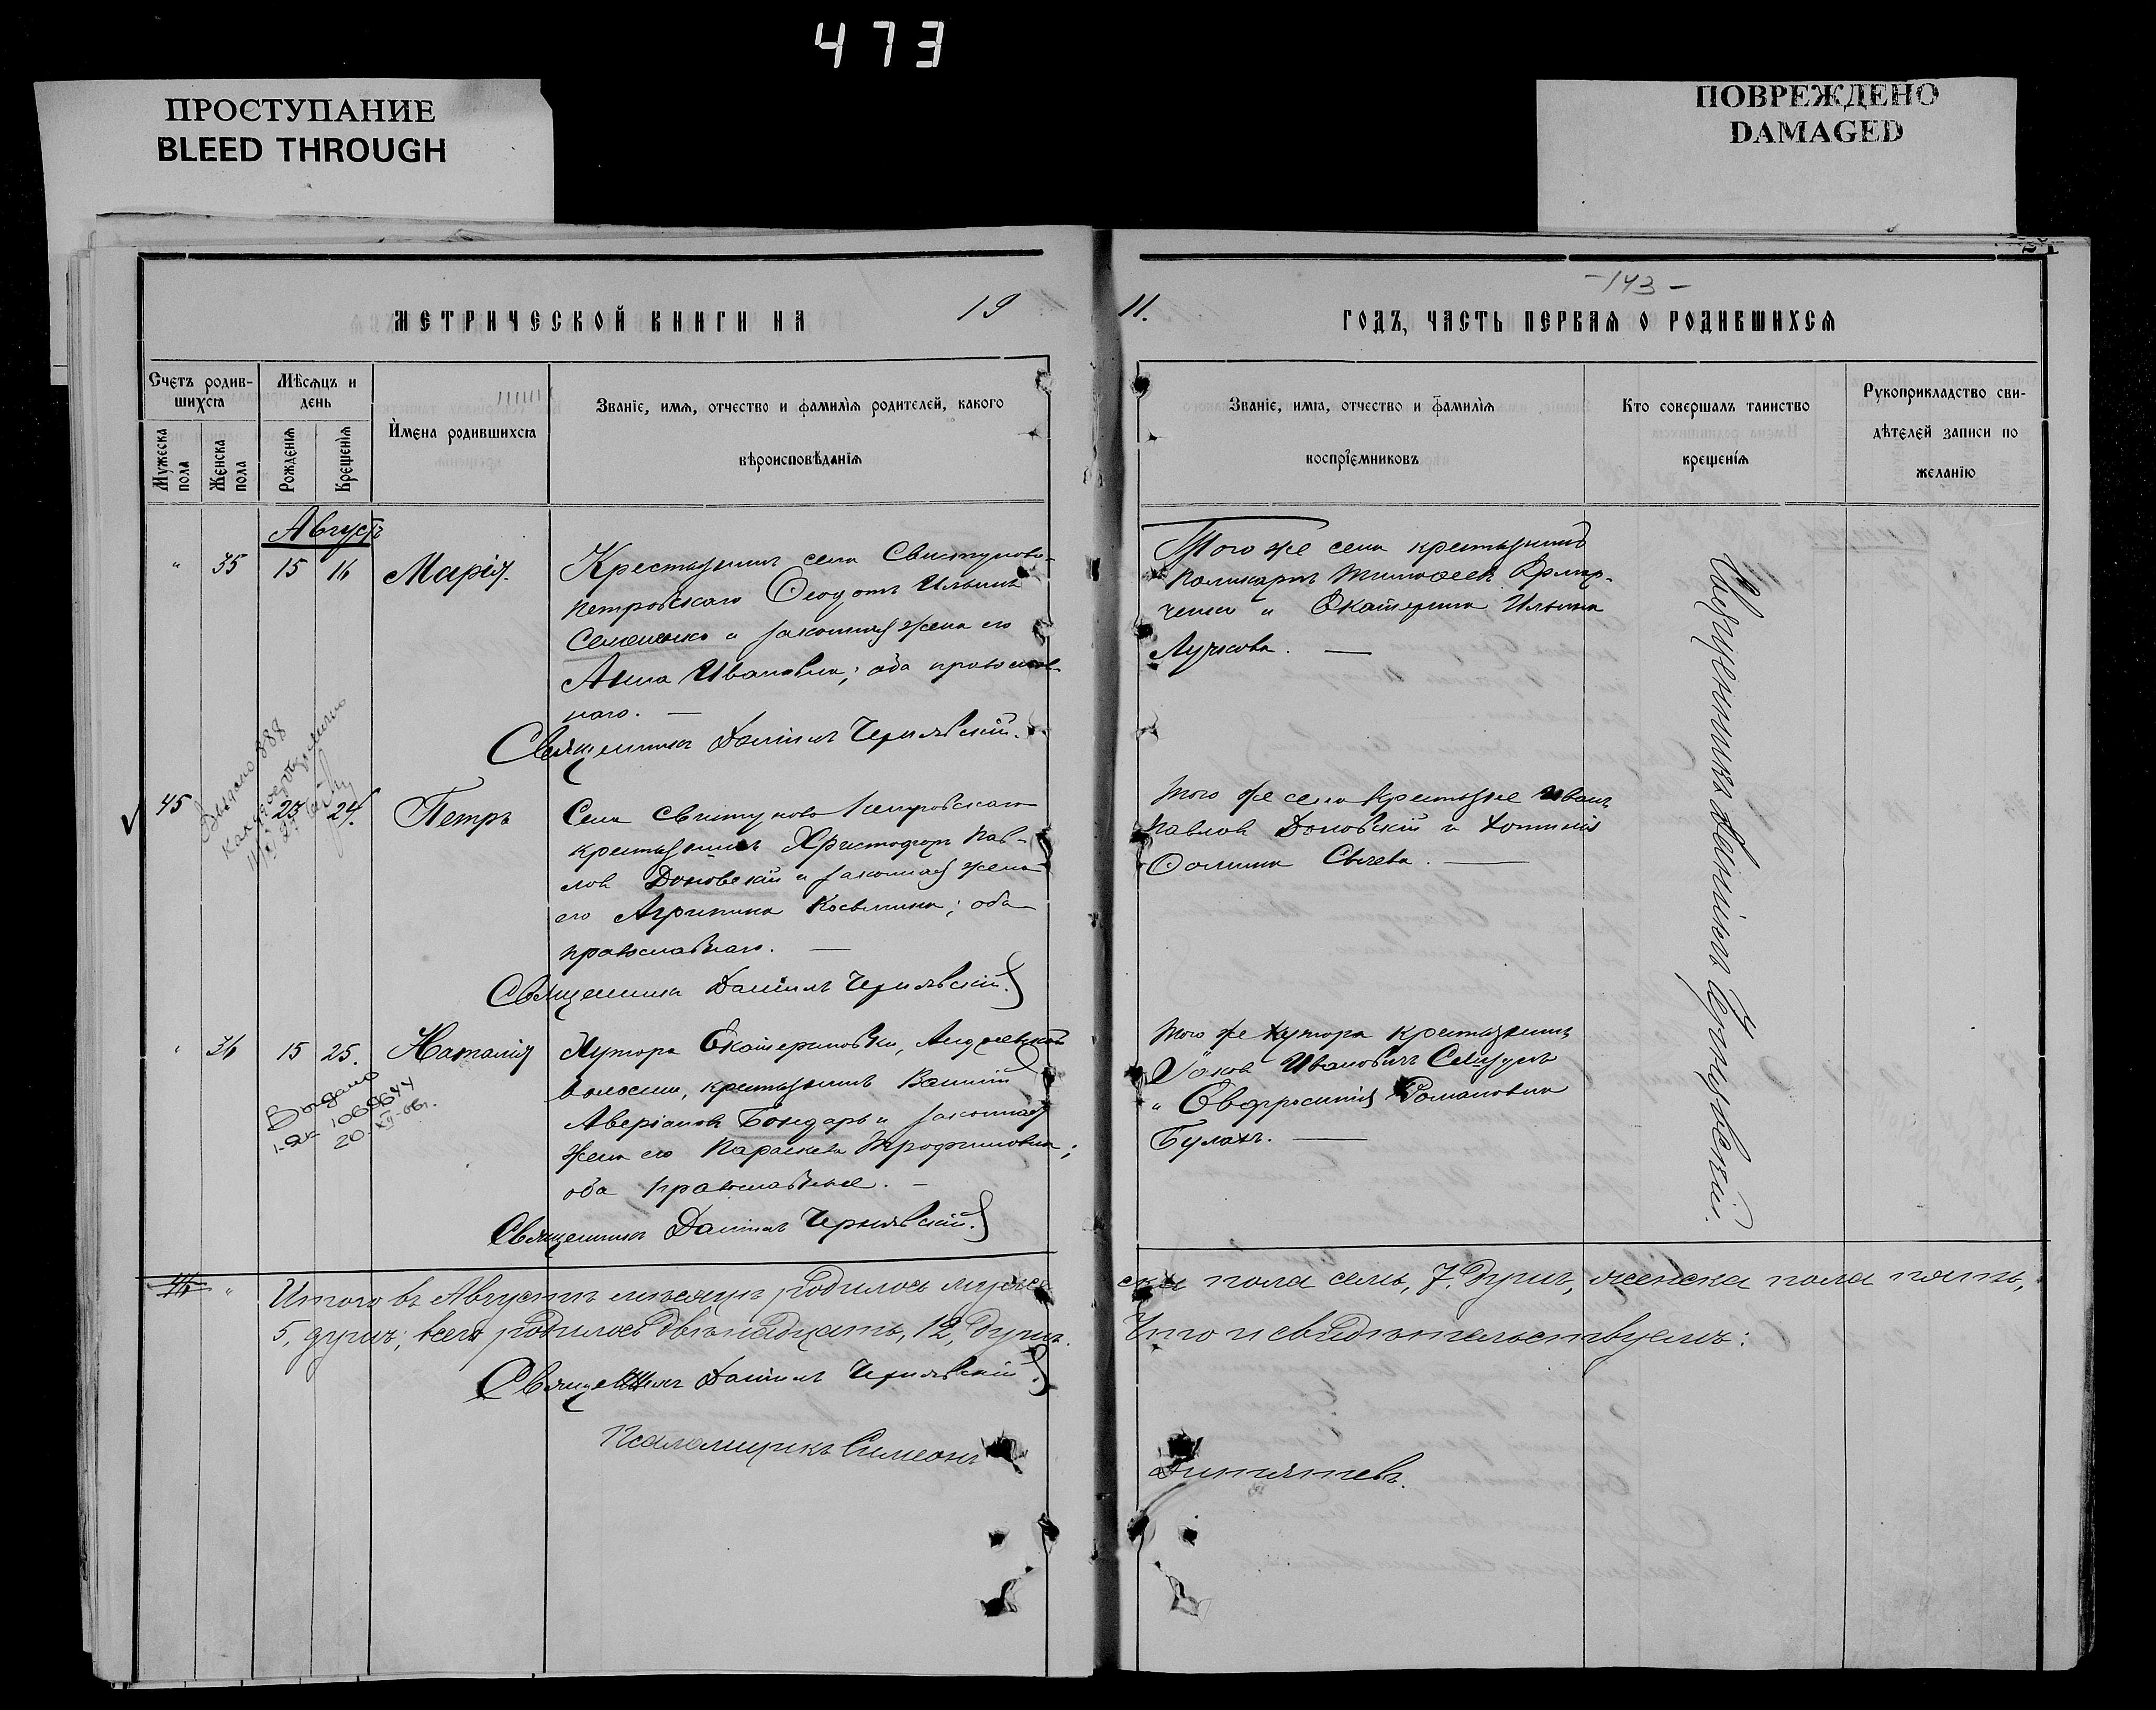 473
ПРОСТУПАНИЕ
BLEED THROUGH
ПОВРЕЖДЕНО
DAMAGED
- 143 -
МЕТРИЧЕСКОЙ КНИГИ НА 19
11. ГОДЪ, ЧАСТЬ ПЕРВАЯ О РОДИВШИХСЯ
Счетъ родив-
шихся
Мужеска пола
Женска пола
Мѣсяцъ и
день
Рожденія
Крещенія
Имена родившихся
Званіе, имя, отчество и фамилія родителей, какого
вѣроисповѣданія
Званіе, имя, отчество и фамилія
воспріемниковъ
Кто совершалъ таинство
крещенія
Рукоприкладство сви-
дѣтелей записи по
желанію
Августъ
" 35 15 16 Марія.
Крестьянинъ села Свистуново-
Петровскаго Ѳеодотъ Ильинъ
Семененко и законная жена его
Анна Иванова; оба православ-
наго. —
Священникъ Даніилъ Чернявскій.
Того же села крестьянинъ
Поликарпъ Тимоѳеевъ
и Екатерина Ильина
Лучкова. —
Священникъ Даніилъ Чернявскій.
45 23 24. Петръ
Выдано 888
Села Свистуново Петровскаго
крестьянинъ Христофоръ Пав-
ловъ Доновскій и законная жена
его Агрипина Косьмина; оба
православнаго. —
Священникъ Даніилъ Чернявскій.
Того же села крестьяне Иванъ
Павловъ Доновскій и
Фомина —
" 36 15 25. Наталія
Выдано
1-ЯК 1069644
20-XII-66г.
Хутора Екатериновки,
волости, крестьянинъ
Аверіановъ Бондарь и законная
жена его Параскева Трофимовна;
оба православные. —
Священникъ Даніилъ Чернявскій.
Того же хутора крестьянинъ
Іаковъ Ивановичъ
и Евфросинія Романовна
Булахъ. —
46 " Итого въ Августѣ мѣсяцѣ родилось муже-
ска пола семь, 7, душъ, женска пола пять,
5, душъ; всего родилось двѣнадцать, 12, душъ.
Что и свидѣтельствуемъ:
Священникъ Даніилъ Чернявскій
Псаломщикъ Симеонъ